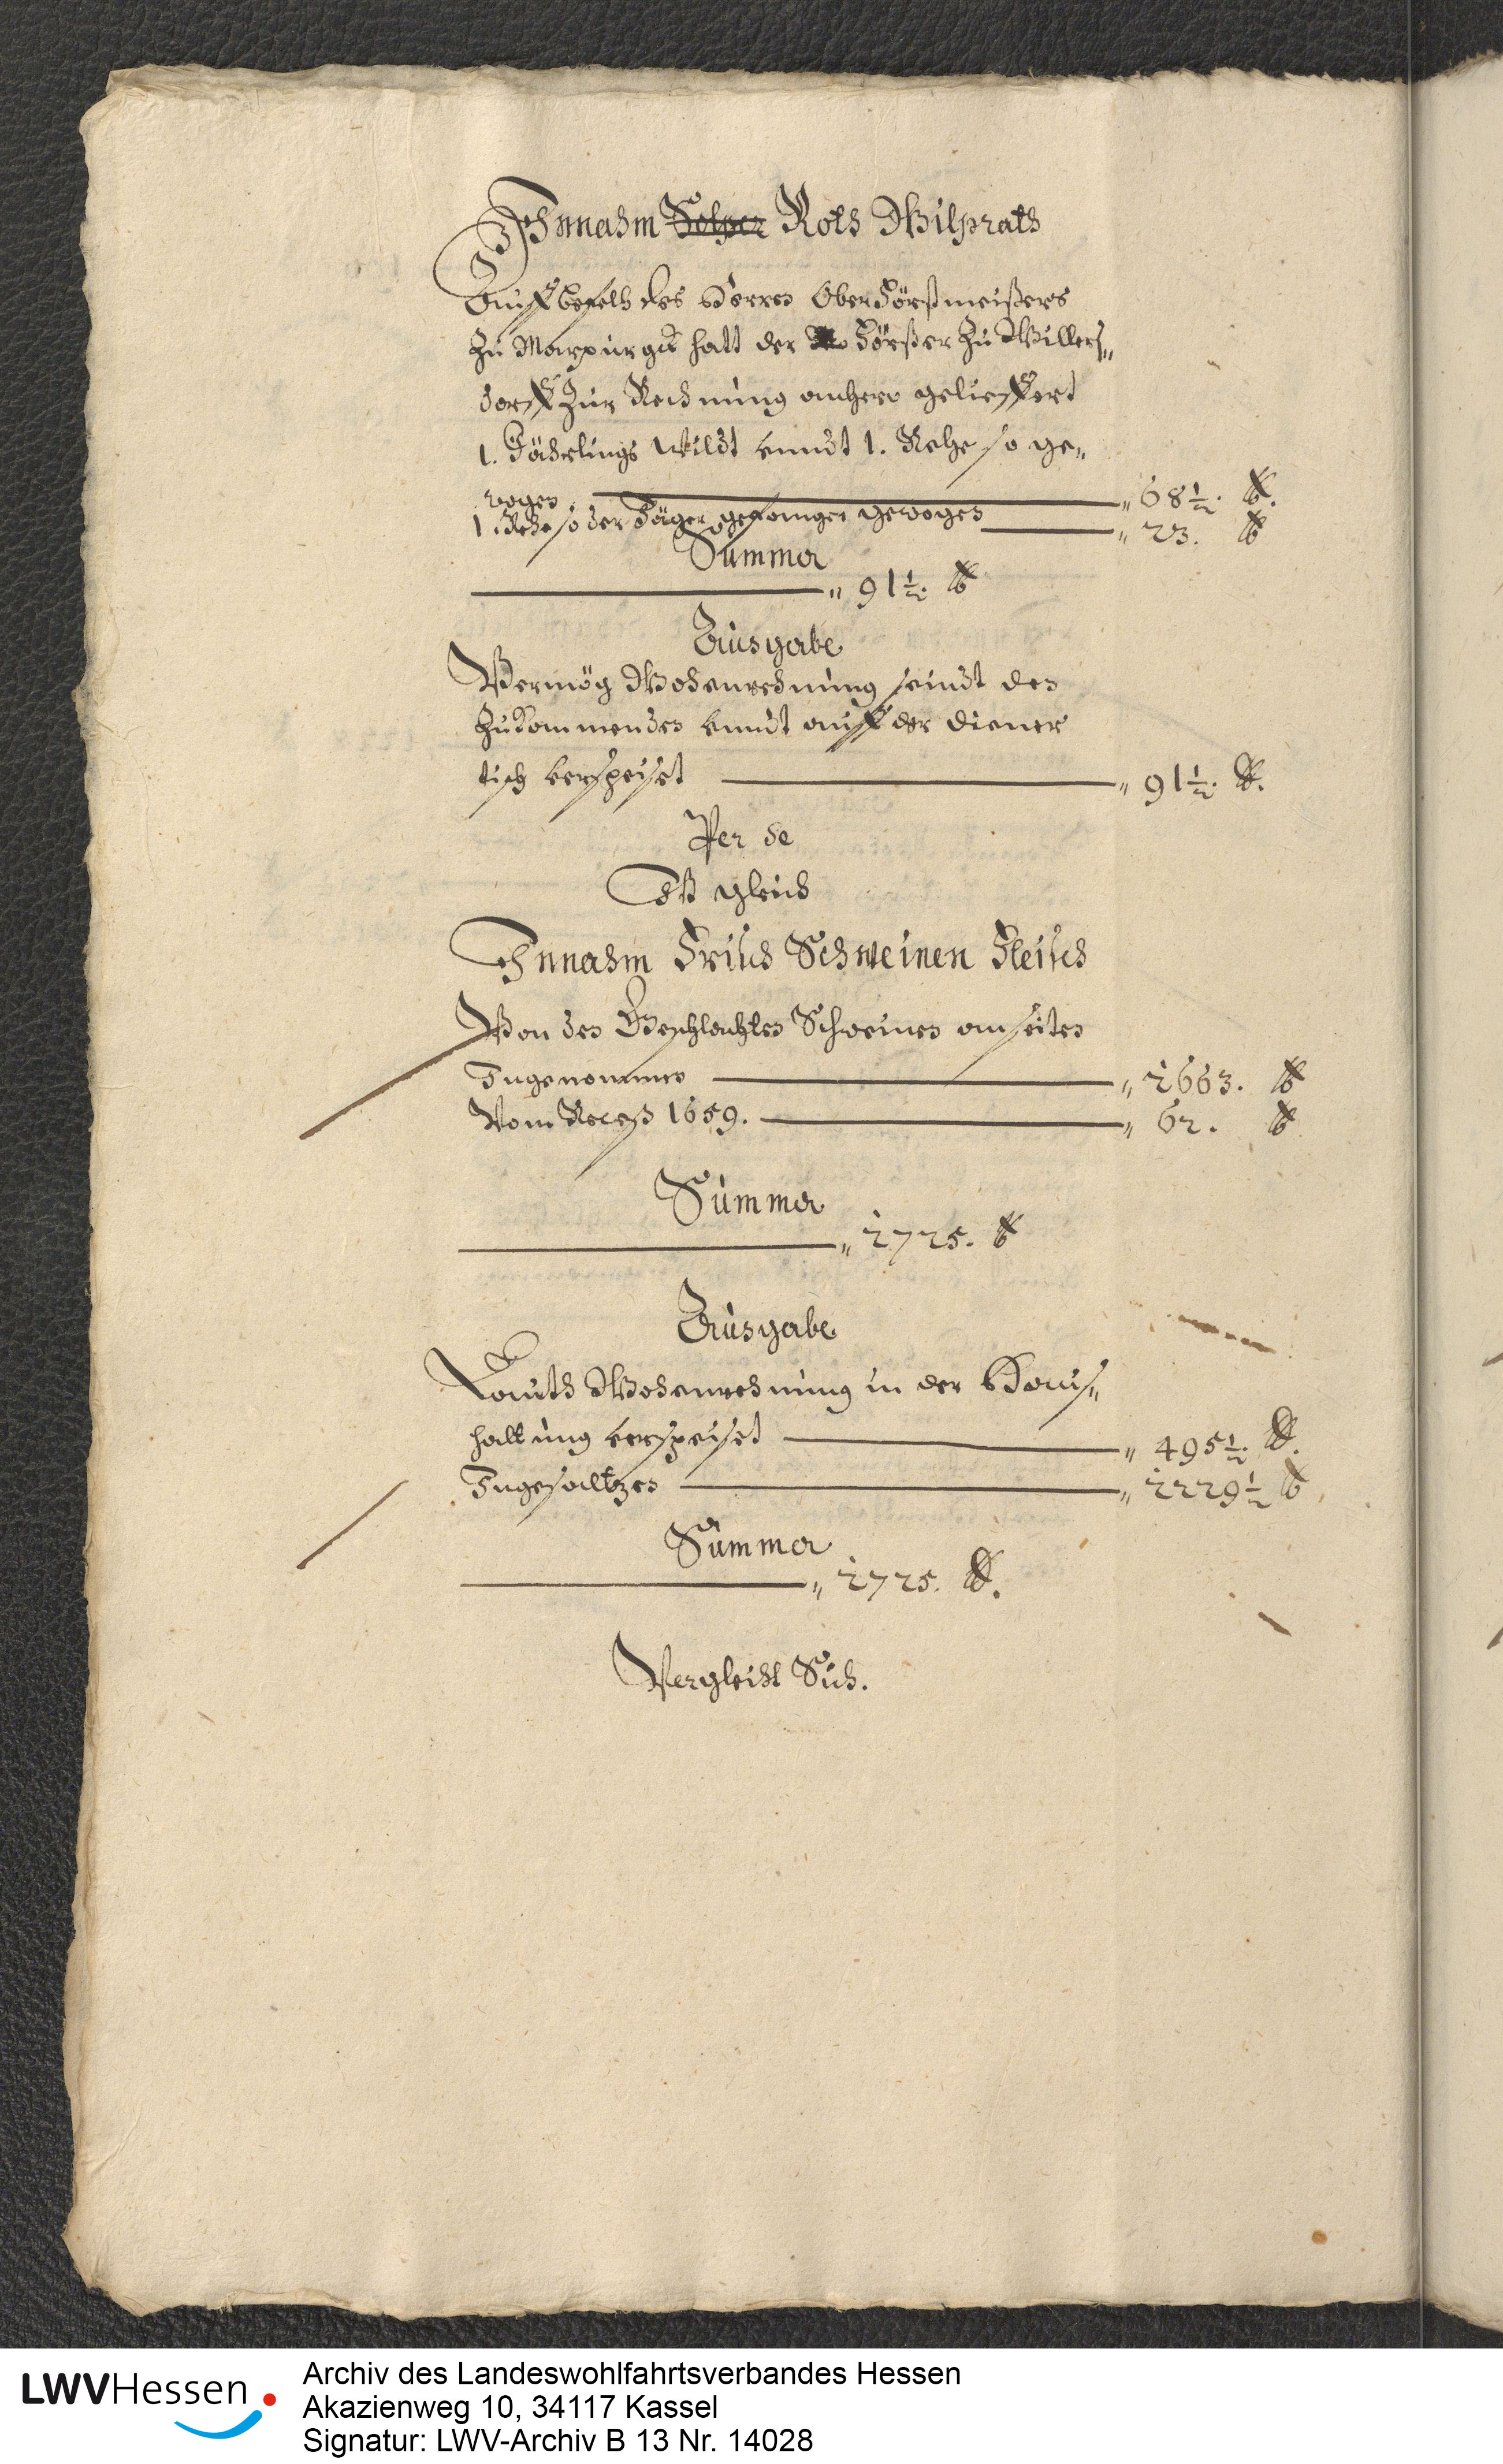 Innahm Solper Roth Wilprath
Auff befelh des Herren Oberförstmeisters
zu Marpurgk hatt der Förster zu Willers„
dorff zur Rechnung anhero gelieffert
1. Jährlings Wildt vnndt 1. Rehe so ge„
wogen „ 68½. ℔.
1. Rehe so der Jäger gefangen gewogen „ 23. ℔
Summa
„ 91½. ℔
Ausgabe
Vermög Wochenrechnung seindt den
zukommenden vnndt auff der diener
tisch verspeiset „ 91½. ℔.
Per se
Ist gleich
Innahm Frisch Schweinen Fleisch
Von den Geschlachten Schweinen anseiten
Ingenommen „ 2663. ℔
Vom Recess 1659. „ 62. ℔
Summa
„ 2725. ℔
Ausgabe
Lauth Wochenrechnung in der Haus„
haltung verspeiset „ 495½. ℔.
Ingesaltzen „ 2229½ ℔
Summa
„ 2725. ℔.
Vergleicht Sich.
LWVHessen
Archiv des Landeswohlfahrtsverbandes Hessen
Akazienweg 10, 34117 Kassel
Signatur: LWV-Archiv B 13 Nr. 14028